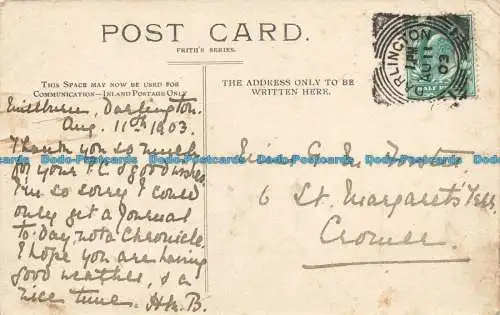 POST CARD.
FRITH'S SERIES.
THIS SPACE MAY NOW BE USED FOR
COMMUNICATION—INLAND POSTAGE ONLY
THE ADDRESS ONLY TO BE
WRITTEN HERE.
DARLINGTON
AU 11
03
HALF
Darlington.
Aug. 11th 1903.
Thank you so much
for your P.C. & good wishes.
I'm so sorry I could
only get a Journal
to-day, not a Chronicle.
I hope you are having
good weather, & a
nice time. B.
Miss
6 St. Margaret's Terr
Cromer
Bobs-Postcards Bobs-Postcards Bobs-Postcards Bobs-Postcards